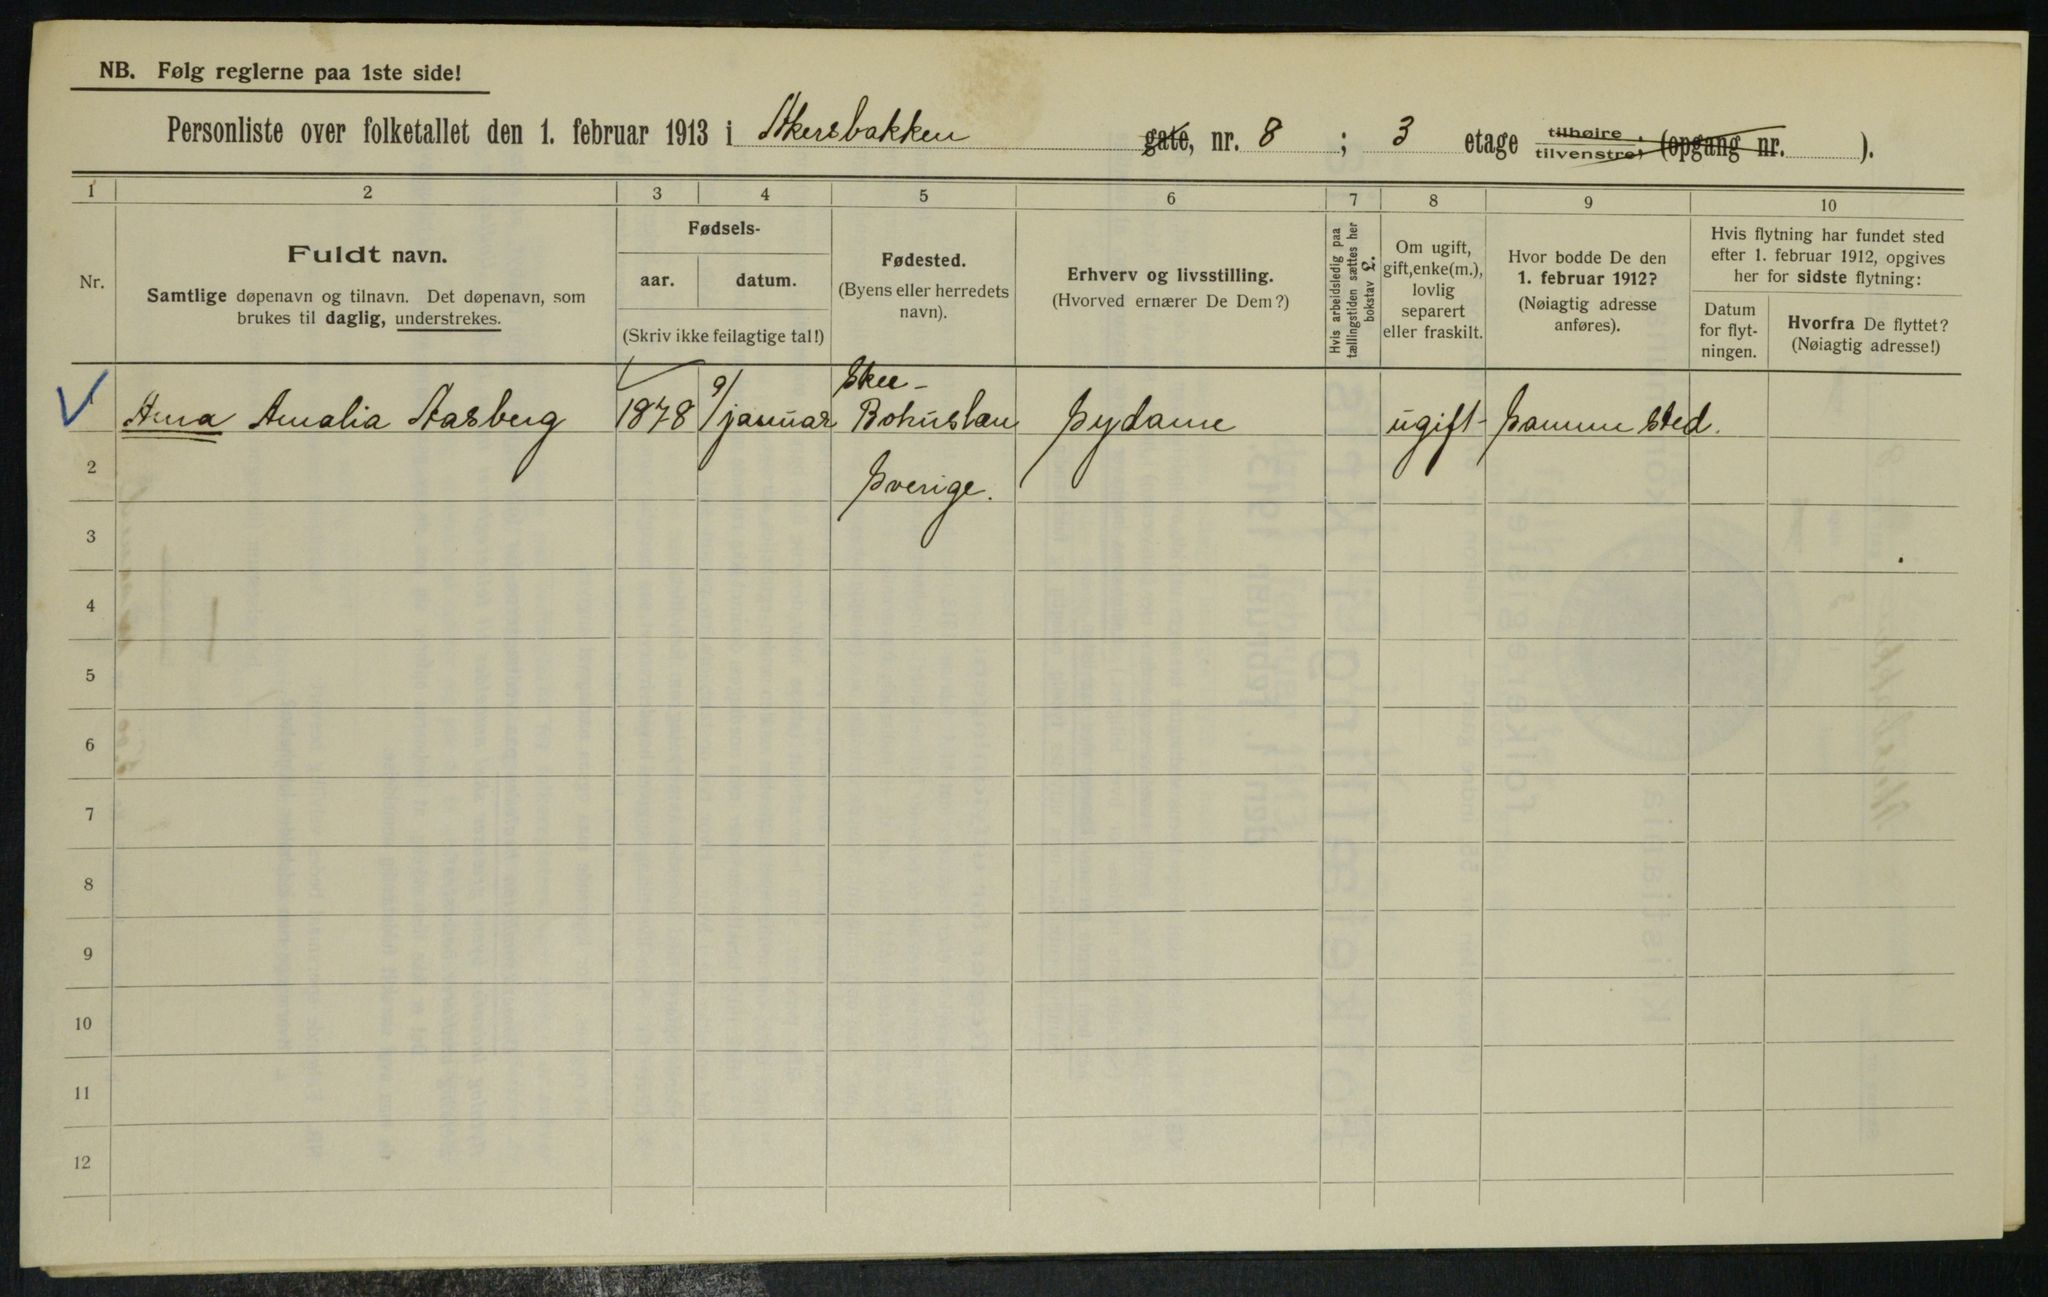 NB. Følg reglerne paa 1ste side!
Personliste over folketallet den 1. februar 1913 i Akersbakken gate, nr. 8 ; 3 etage tilhøire, tilvenstre, (opgang nr. ).
1 2 3 4 5 6 7 8 9 10
Nr.
Fuldt navn.
Samtlige døpenavn og tilnavn. Det døpenavn, som
brukes til daglig, understrekes.
Fødsels-
aar. datum.
(Skriv ikke feilagtige tal!)
Fødested.
(Byens eller herredets
navn).
Erhverv og livsstilling.
(Hvorved ernærer De Dem?)
Hvis arbeidsledig paa
tællingstiden sættes her
bokstav £.
Om ugift,
gift, enke(m.),
lovlig
separert
eller fraskilt.
Hvor bodde De den
1. februar 1912?
(Nøiagtig adresse
anføres).
Hvis flytning har fundet sted
efter 1. februar 1912, opgives
her for sidste flytning:
Datum
for flyt-
ningen.
Hvorfra De flyttet?
(Nøiagtig adresse!)
Skee-
Anna Amalia Aasberg 1878 9/ januar Bohuslan Sydame ugift Samme sted.
2 Sverige.
3
4
5
6
7
8
9
10
11
12